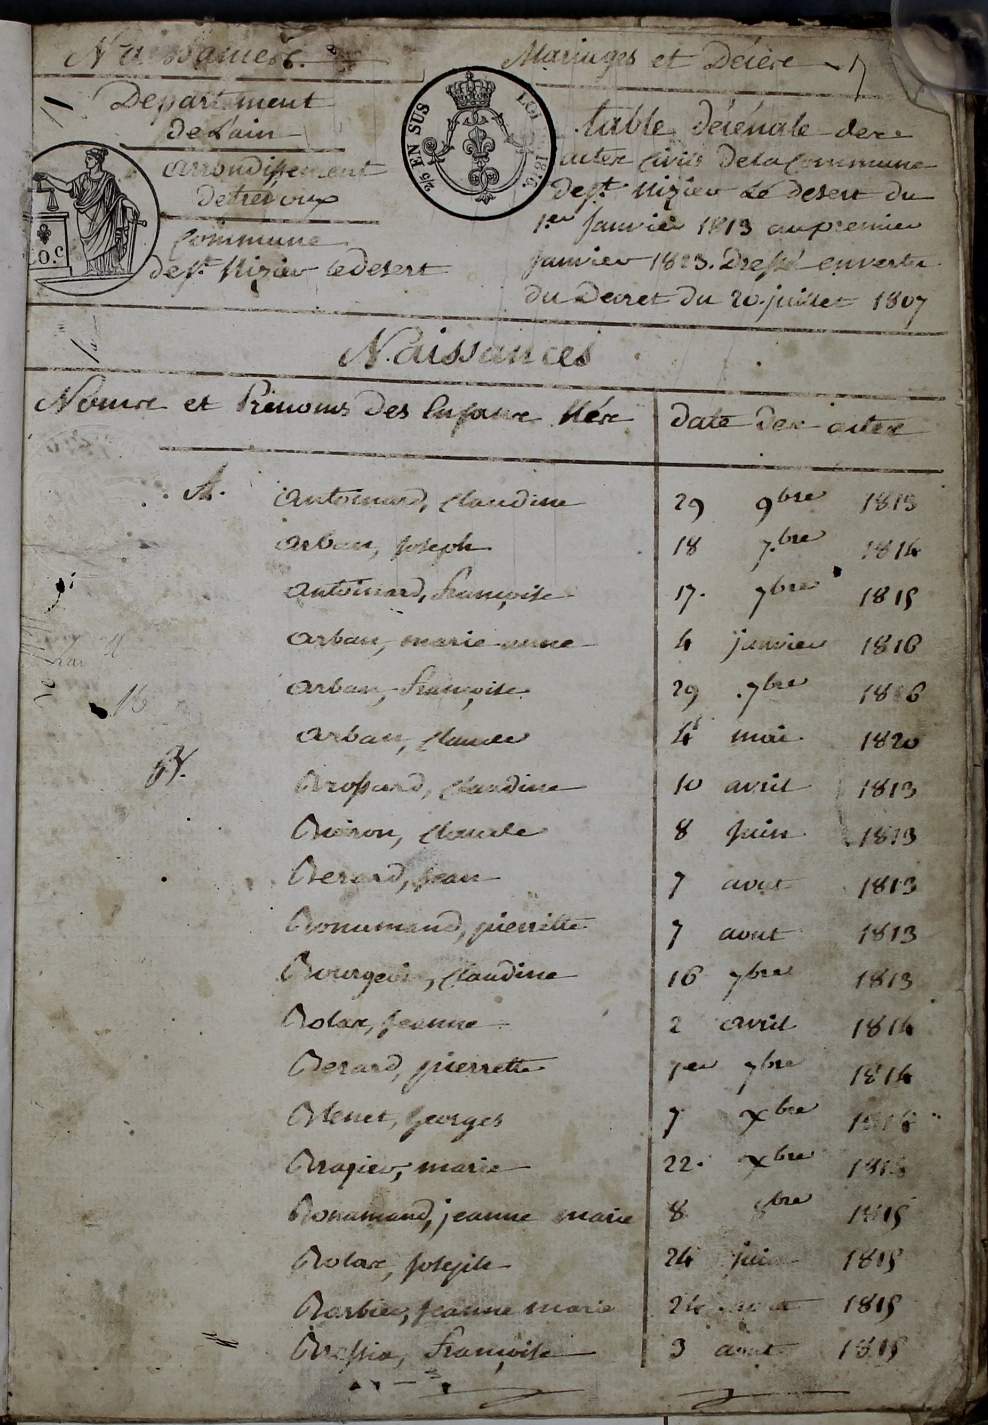 Naissances. Mariages et Décèx
Département
de Lain
arrondissement
de trévoux
Commune
de St. Nizier le desert
2/6 EN SUS LOI 1816
O.C
table décénale dex
actex civils de la Commune
de St. Nizier Le desert du
1.er Janvier 1813 au premier
Janvier 1823. Dressé en vertu
du Decret du 20 juillet 1807
Naissances
Nomx et Prénoms des Enfanx Néx date dex actex
A. antoinard, claudine 29 9bre 1813
arban, joseph 18 7.bre 1814
antoinard, françoise 17. 7bre 1815
arban, marie anne 4 janvier 1816
arban, françoise 29 7bre 1816
arban, claude 4 mai 1820
B. Brossard, claudine 10 avril 1813
Buiron, claude 8 juin 1813
Berard, jean 7 aout 1813
Bonamand, pierrette 7 aout 1813
Bourgeois, claudine 16 7bre 1813
Bolax, jeanne 2 avril 1814
Berard, pierrette 1er 7bre 1814
Blenet, georges 7 xbre 1814
Brazier, marie 22. xbre
Bonamand, jeanne marie 8 bre 1815
Bolax, joseph 24 juin 1815
Barbier, jeanne marie 1815
Bressia, françoise 3 aout 1815